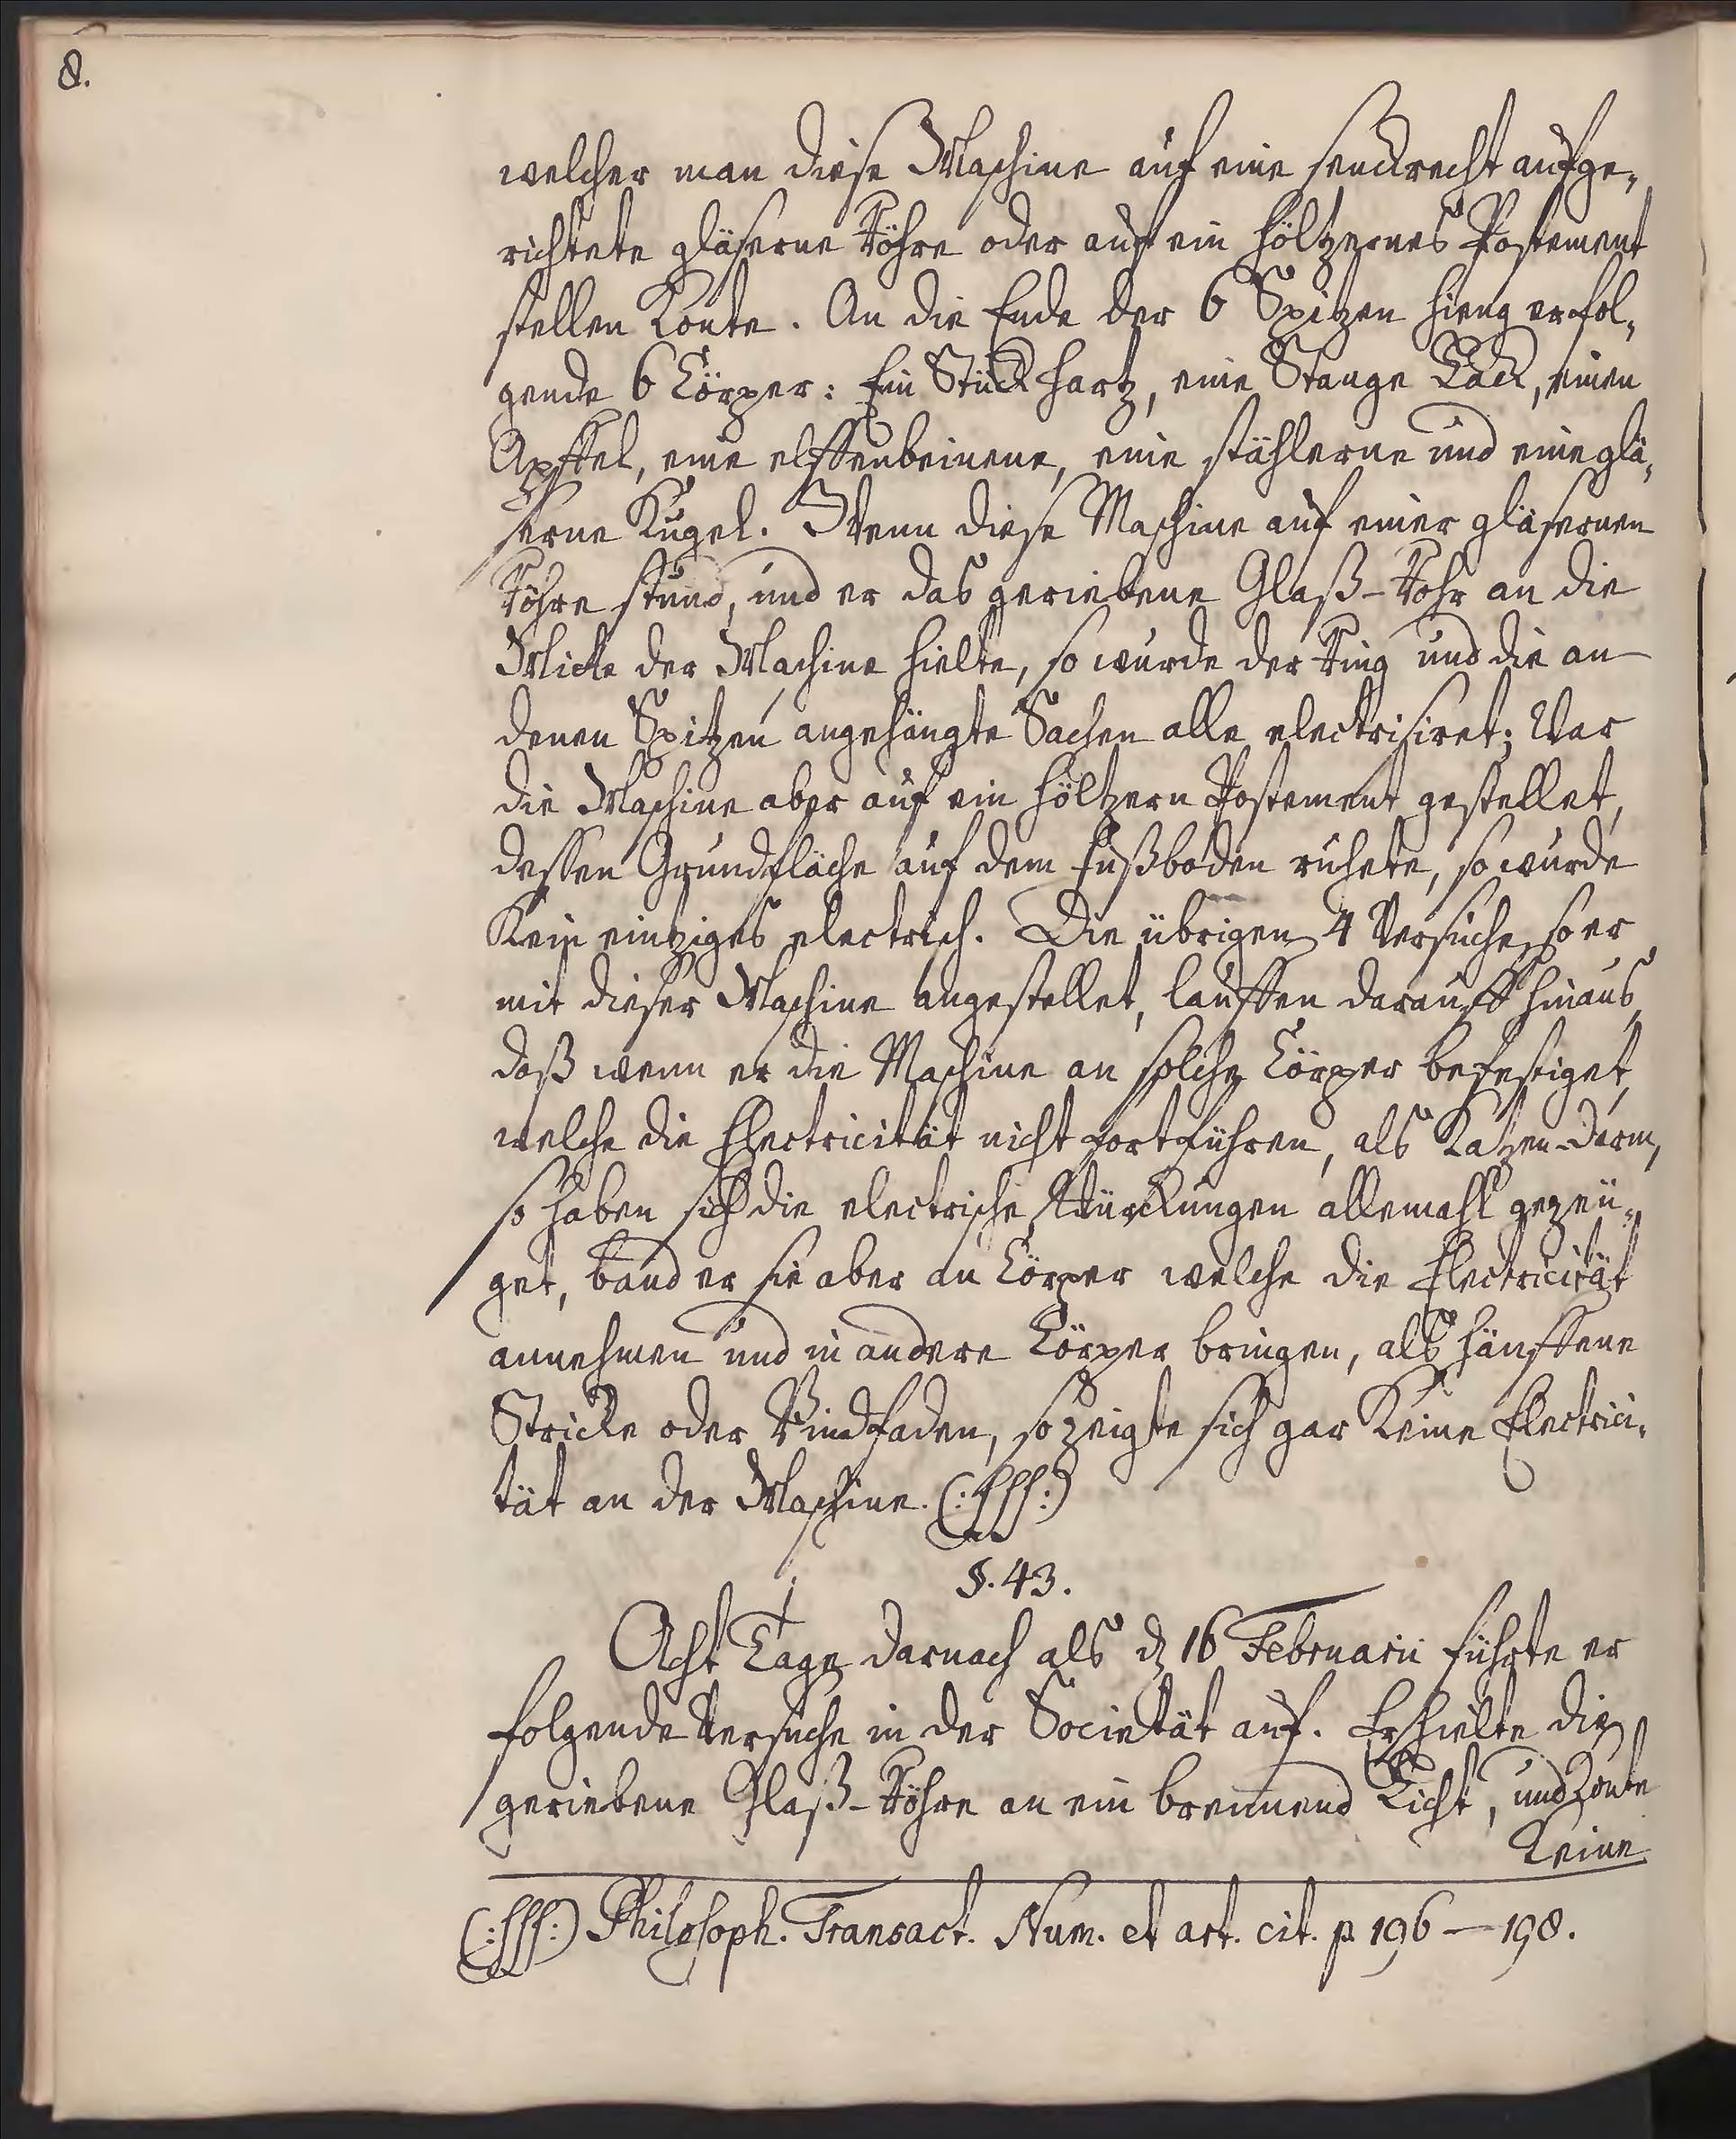 8.
welcher man diese Maschine auf eine senckrecht aufge„
richtete gläserne Röhre oder auf ein höltzernes Postement
stellen konte. An die Ende der 6 Spitzen hieng er fol„
gende 6 Cörper: Ein Stück Hartz, eine Stange Lack, einen
Apffel, eine elffenbeinene, eine stählerne und eine glä„
serne Kugel. Wenn diese Maschine auf einer gläsernen
Röhre stund, und er das geriebene Glaß-Rohr an die
Mitte der Machine hielte, so wurde der Ring und die an
denen Spitzen angehängte Sachen alle electrisiret; War
die Maschine aber auf ein höltzern Postement gestellet,
dessen Grundfläche auf dem Fußboden ruhete, so wurde
kein eintziges electrisch. Die übrigen 4 Versuche, so er
mit dieser Maschine angestellet, lauffen darauff hinaus,
daß wenn er die Maschine an solche Cörper befestiget,
welche die Electricität nicht fortführen, als Katzen-Därm,
so haben sich die electrische Würckungen allemahl gezeü„
get, band er sie aber an Cörper welche die Electricität
annehmen und in andere Cörper bringen, als hänffene
Stricke oder Bindfaden, so zeigte sich gar keine Electrici„
tät an der Maschine. (:fff:)
§. 43.
Acht Tage darnach als d. 16 Februarii führte er
folgende Versuche in der Societät auf. Er hielte die
geriebene Glaß-Röhre an ein brennend Licht, und konte
keine
(:fff:) Philosoph. Transact. Num. et art. cit. p 196 — 198.